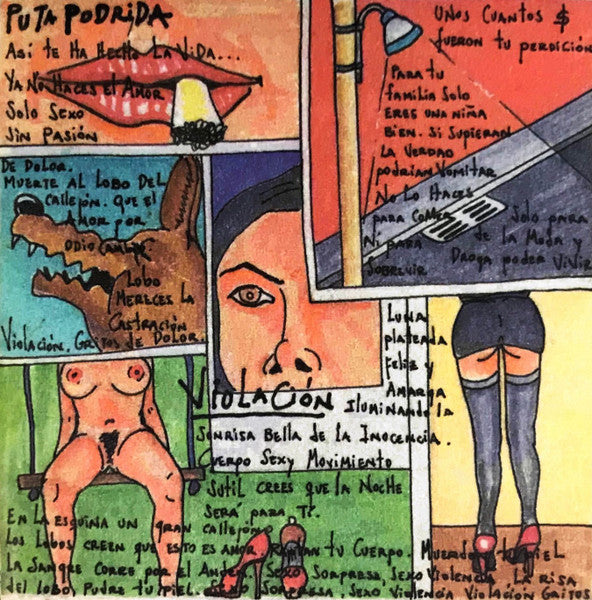 PUTA PODRIDA
ASÍ TE HA HECHO LA VIDA...
YA NO HACES EL AMOR
SOLO SEXO
SIN PASIÓN
UNOS CUANTOS $
FUERON TU PERDICIÓN
PARA TU
FAMILIA SOLO
ERES UNA NIÑA
BIEN. SI SUPIERAN
LA VERDAD
PODRÍAN VOMITAR
NO LO HACES
PARA COMER
NI PARA
SOBREVIR
SOLO PARA
DE LA MODA Y
DROGA PODER VIVIR
VIOLACIÓN
LUNA
PLATEADA
FELIZ Y
AMARGA
ILUMINANDO LA
SONRISA BELLA DE LA INOCENCIA.
CUERPO SEXY MOVIMIENTO
SUTIL CREES QUE LA NOCHE
SERÁ PARA TI.
EN LA ESQUINA UN GRAN CALLEJÓN
LOS LOBOS CREEN QUE ESTO ES AMOR. TU CUERPO. MUERDEN TU PIEL
LA SANGRE CORRE POR EL SEXO SORPRESA, SEXO VIOLENCIA. LA RISA
DEL LOBO, PUDRE TU PIEL. SEXO SORPRESA. SEXO VIOLENCIA VIOLACIÓN GRITOS
DE DOLOR.
MUERTE AL LOBO DEL
CALLEJÓN. QUE EL
AMOR POR
ODIO
LOBO
MERECES LA
CASTRACIÓN
VIOLACIÓN. GRITOS DE DOLOR.